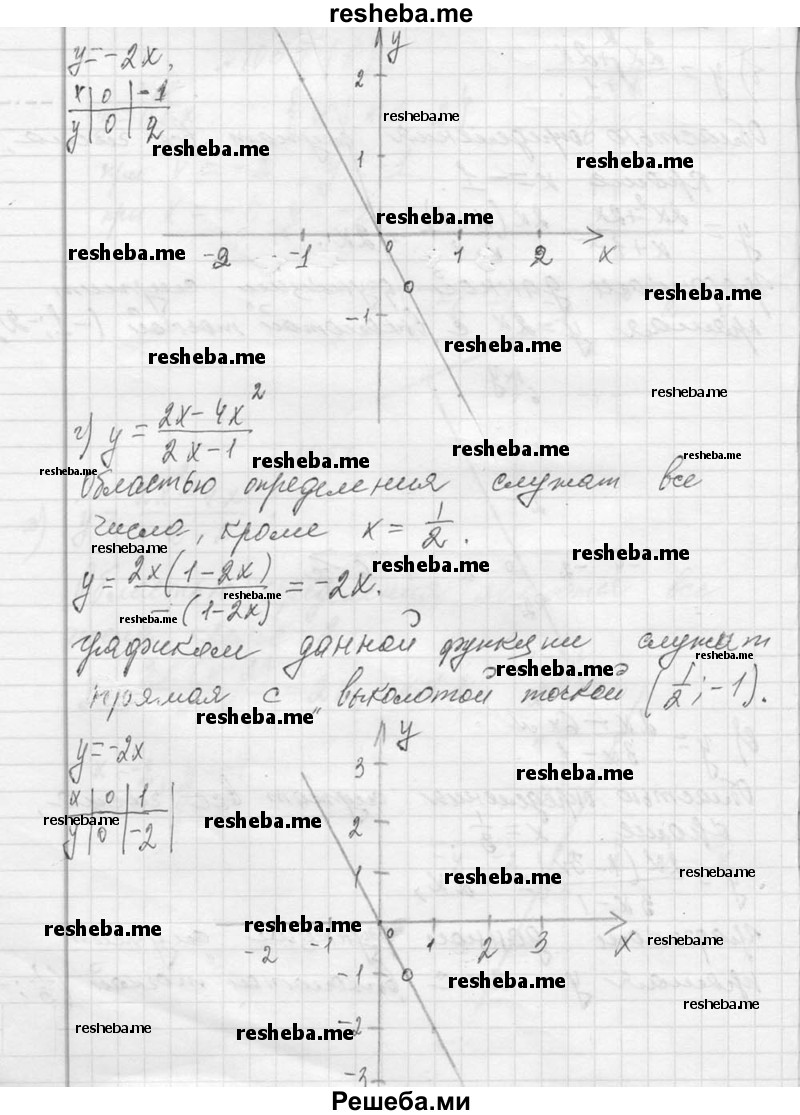 resheba.me
y=-2x,
x | 0 | -1
y | 0 | 2
y
2
1
-2 -1 0 1 2 x
-1
resheba.me
resheba.me
resheba.me
resheba.me
resheba.me
resheba.me
resheba.me
resheba.me
resheba.me
г) y = (2x-4x²)/(2x-1)
resheba.me
resheba.me
resheba.me
resheba.me
Областью определения служат все
числа, кроме x = 1/2.
resheba.me
resheba.me
resheba.me
y = 2x(1-2x)/-(1-2x) = -2x.
resheba.me
resheba.me
графиком данной функции служит
resheba.me
resheba.me
прямая с "выколотой" точкой (1/2; -1).
resheba.me
y=-2x
x | 0 | 1
y | 0 | -2
y
3
2
1
-2 -1 0 1 2 3 x
-1
-2
-3
resheba.me
resheba.me
resheba.me
resheba.me
resheba.me
resheba.me
resheba.me
resheba.me
resheba.me
resheba.me
resheba.me
resheba.me
Решеба.ми